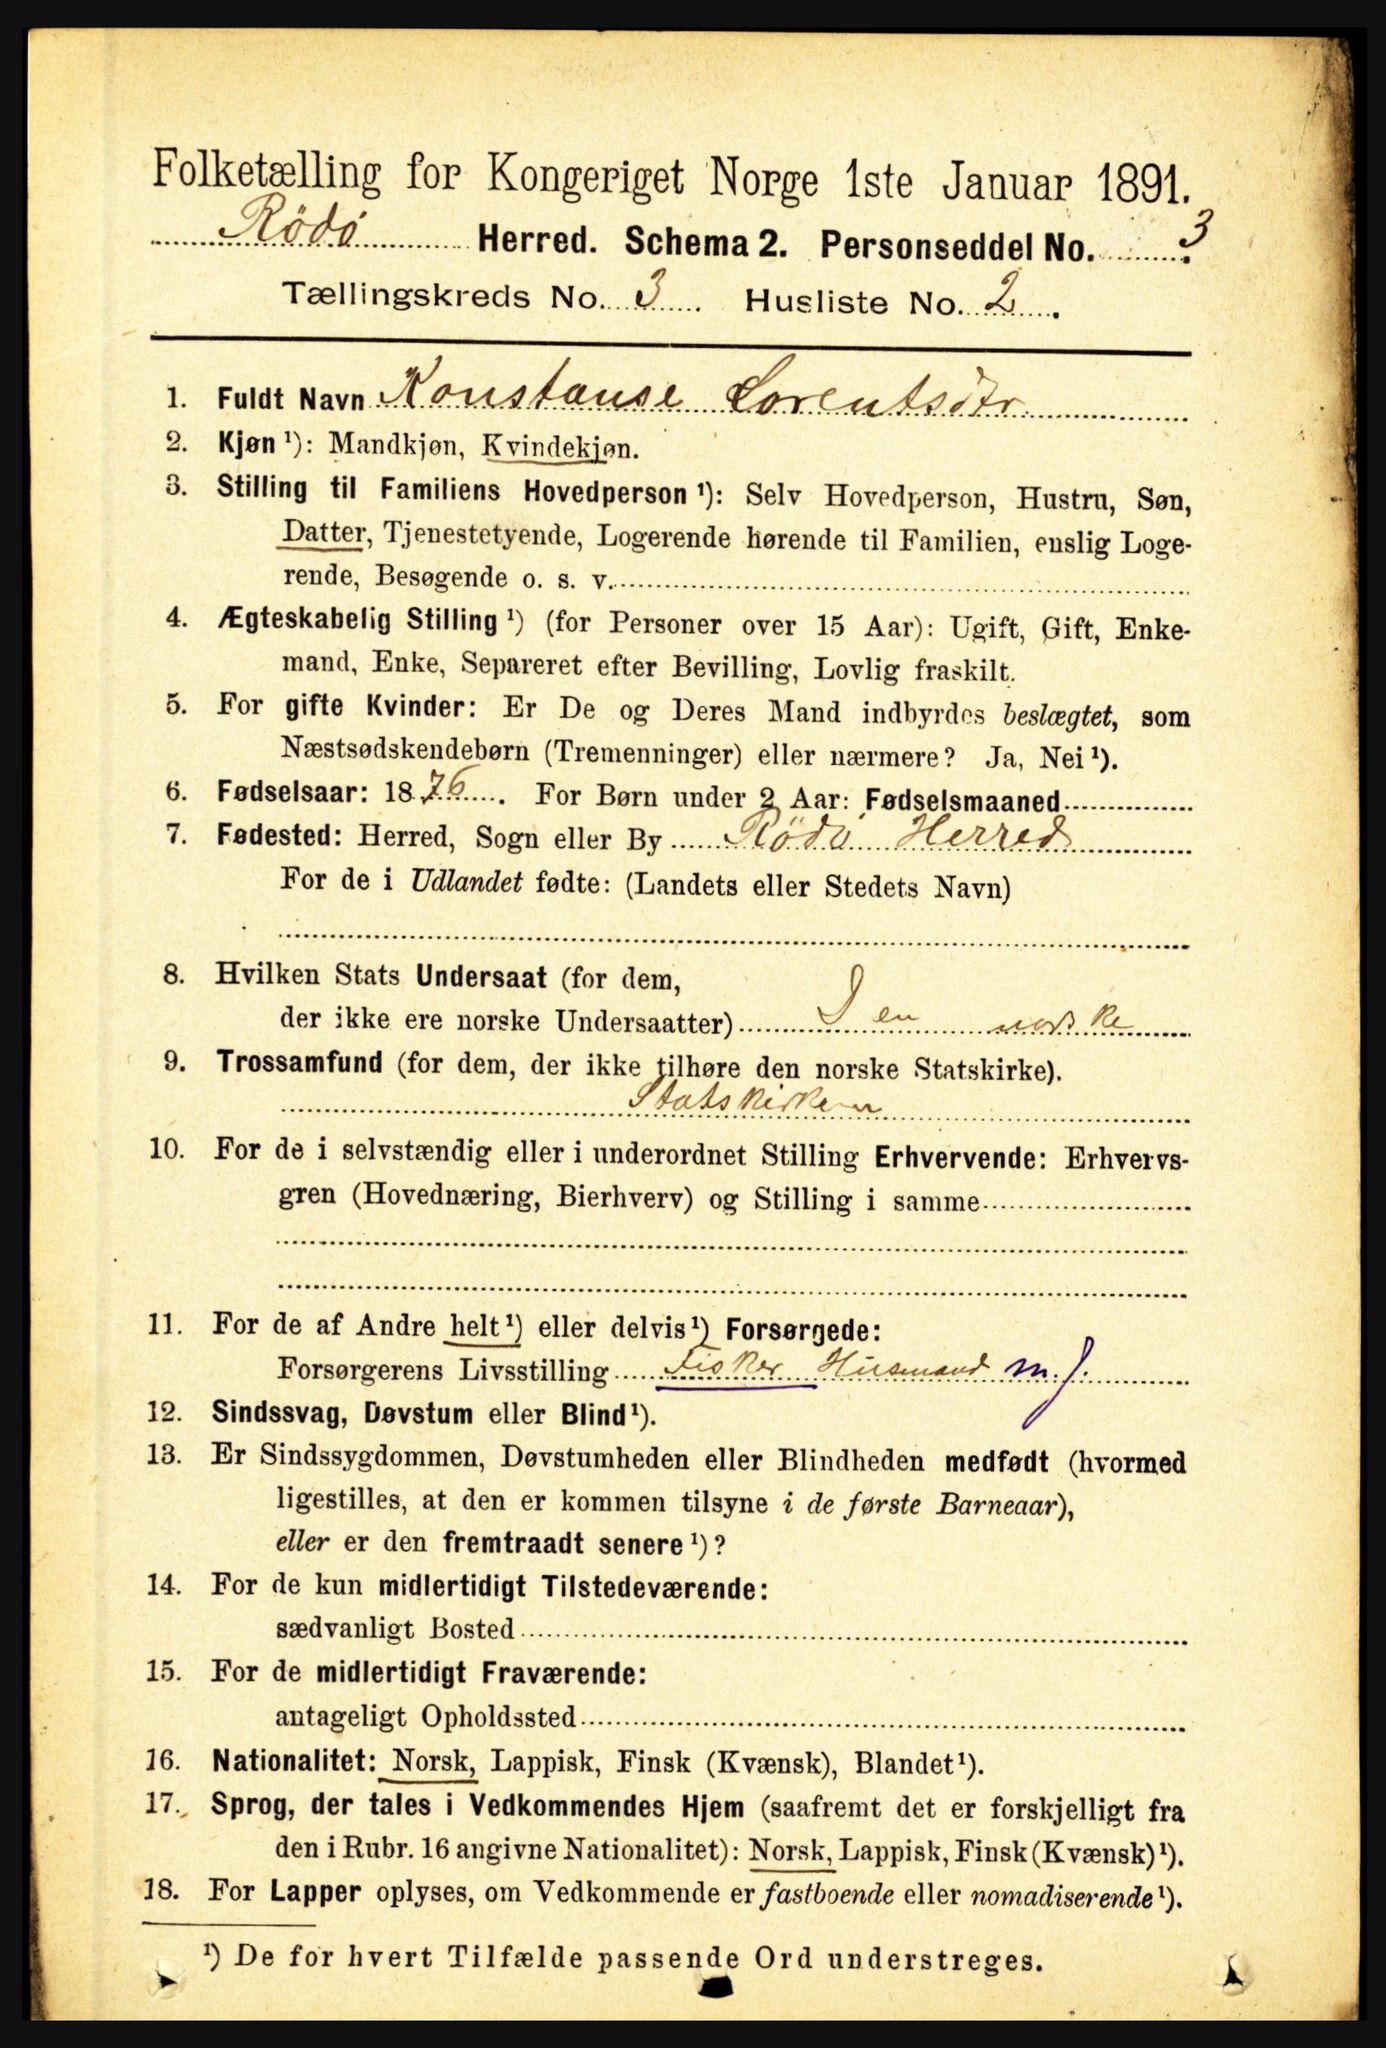 Folketælling for Kongeriget Norge 1ste Januar 1891.
Rödö Herred. Schema 2. Personseddel No. 3.
Tællingskreds No. 3. Husliste No. 2.
1. Fuldt Navn Konstanse Lorentsdtr
2. Kjøn ¹): Mandkjøn, Kvindekjøn.
3. Stilling til Familiens Hovedperson ¹): Selv Hovedperson, Hustru, Søn,
Datter, Tjenestetyende, Logerende hørende til Familien, enslig Loge-
rende, Besøgende o. s. v.
4. Ægteskabelig Stilling ¹) (for Personer over 15 Aar): Ugift, Gift, Enke-
mand, Enke, Separeret efter Bevilling, Lovlig fraskilt.
5. For gifte Kvinder: Er De og Deres Mand indbyrdes beslægtet, som
Næstsødskendebørn (Tremenninger) eller nærmere? Ja, Nei ¹).
6. Fødselsaar: 1876. For Børn under 2 Aar: Fødselsmaaned
7. Fødested: Herred, Sogn eller By Rödö Herred
For de i Udlandet fødte: (Landets eller Stedets Navn)
8. Hvilken Stats Undersaat (for dem,
der ikke ere norske Undersaatter) Den norske
9. Trossamfund (for dem, der ikke tilhøre den norske Statskirke).
Statskirken
10. For de i selvstændig eller i underordnet Stilling Erhvervende: Erhvervs-
gren (Hovednæring, Bierhverv) og Stilling i samme
11. For de af Andre helt ¹) eller delvis ¹) Forsørgede:
Forsørgerens Livsstilling Fisker Husmand m. J.
12. Sindssvag, Døvstum eller Blind ¹).
13. Er Sindssygdommen, Døvstumheden eller Blindheden medfødt (hvormed
ligestilles, at den er kommen tilsyne i de første Barneaar),
eller er den fremtraadt senere ¹)?
14. For de kun midlertidigt Tilstedeværende:
sædvanligt Bosted
15. For de midlertidigt Fraværende:
antageligt Opholdssted
16. Nationalitet: Norsk, Lappisk, Finsk (Kvænsk), Blandet ¹).
17. Sprog, der tales i Vedkommendes Hjem (saafremt det er forskjelligt fra
den i Rubr. 16 angivne Nationalitet): Norsk, Lappisk, Finsk (Kvænsk) ¹).
18. For Lapper oplyses, om Vedkommende er fastboende eller nomadiserende ¹).
¹) De for hvert Tilfælde passende Ord understreges.